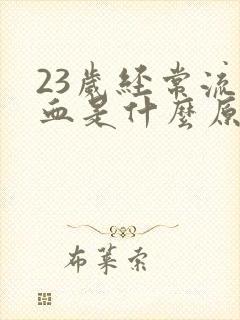 23歲經常流
血是什麼原
布萊索